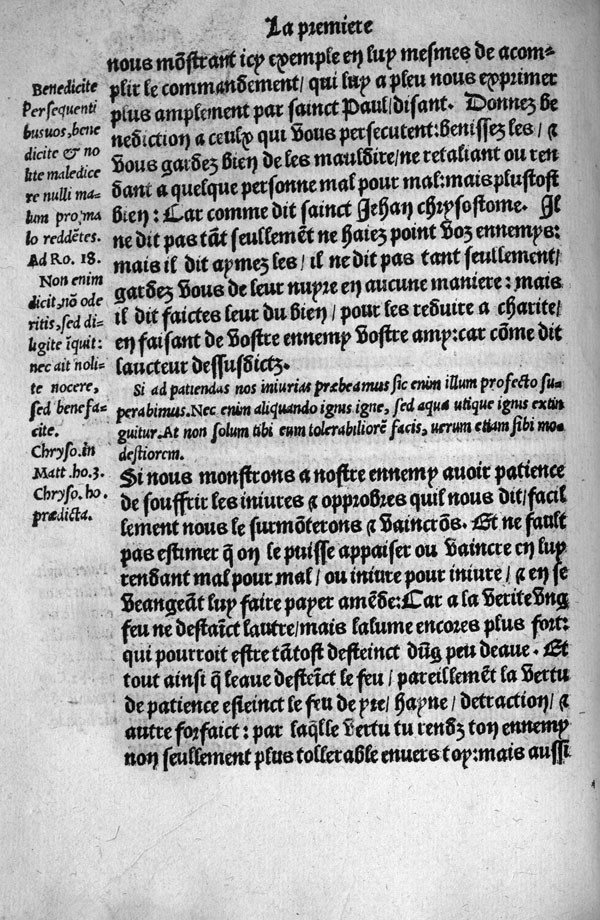 La premiere
nous mōstrant icy exemple en luy mesmes de acom-
plir le commandement/ qui luy a pleu nous exprimer
plus amplement par sainct Paul/ disant. Donnez be
nediction a ceulx qui vous persecutent: benissez les/ &
vous gardez bien de les mauldire/ ne retaliant ou ren
dant a quelque personne mal pour mal: mais plustost
bien: Car comme dit sainct Jehan chrysostome. Il
ne dit pas tāt seullemēt ne haiez point voz ennemys:
mais il dit aymez les/ il ne dit pas tant seullement/
gardez vous de leur nuyre en aucune maniere: mais
il dit faictes leur du bien/ pour les reduire a charite/
en faisant de vostre ennemy vostre amy: car cōme dit
laucteur dessusdictz.
Si ad patiendas nos iniurias præbeamus sic enim illum profecto su-
perabimus. Nec enim aliquando ignus igne, sed aqua utique ignus extin
guitur. At non solum tibi eum tolerabiliorē facis, uerum etiam sibi mo
destiorem.
Si nous monstrons a nostre ennemy auoir patience
de souffrir les iniures & opprobres quil nous dit/ facil
lement nous le surmōterons & vaincrōs. Et ne fault
pas estimer q̄ on le puisse appaiser ou vaincre en luy
rendant mal pour mal/ ou iniure pour iniure/ & en se
veangeāt luy faire payer amēde: Car a la verite vng
feu ne destaīct lautre/ mais lalume encores plus fort:
qui pourroit estre tātost desteinct dūg peu deaue. Et
tout ainsi q̄ leaue desteīct le feu/ pareillemēt la vertu
de patience esteinct le feu de yre/ hayne/ detraction/ &
autre forfaict: par laq̄lle vertu tu rendz ton ennemy
non seullement plus tollerable enuers toy: mais aussi
Benedicite
Persequenti
busuos, bene
dicite & no
lite maledice
re nulli ma-
lum pro, ma
lo reddētes.
Ad Ro. 18.
Non enim
dicit, nō ode
ritis, sed di-
ligite īquit:
nec ait noli-
te nocere,
sed benefa-
cite.
Chryso. in
Matt. ho. 3.
Chryso. ho.
prædicta.